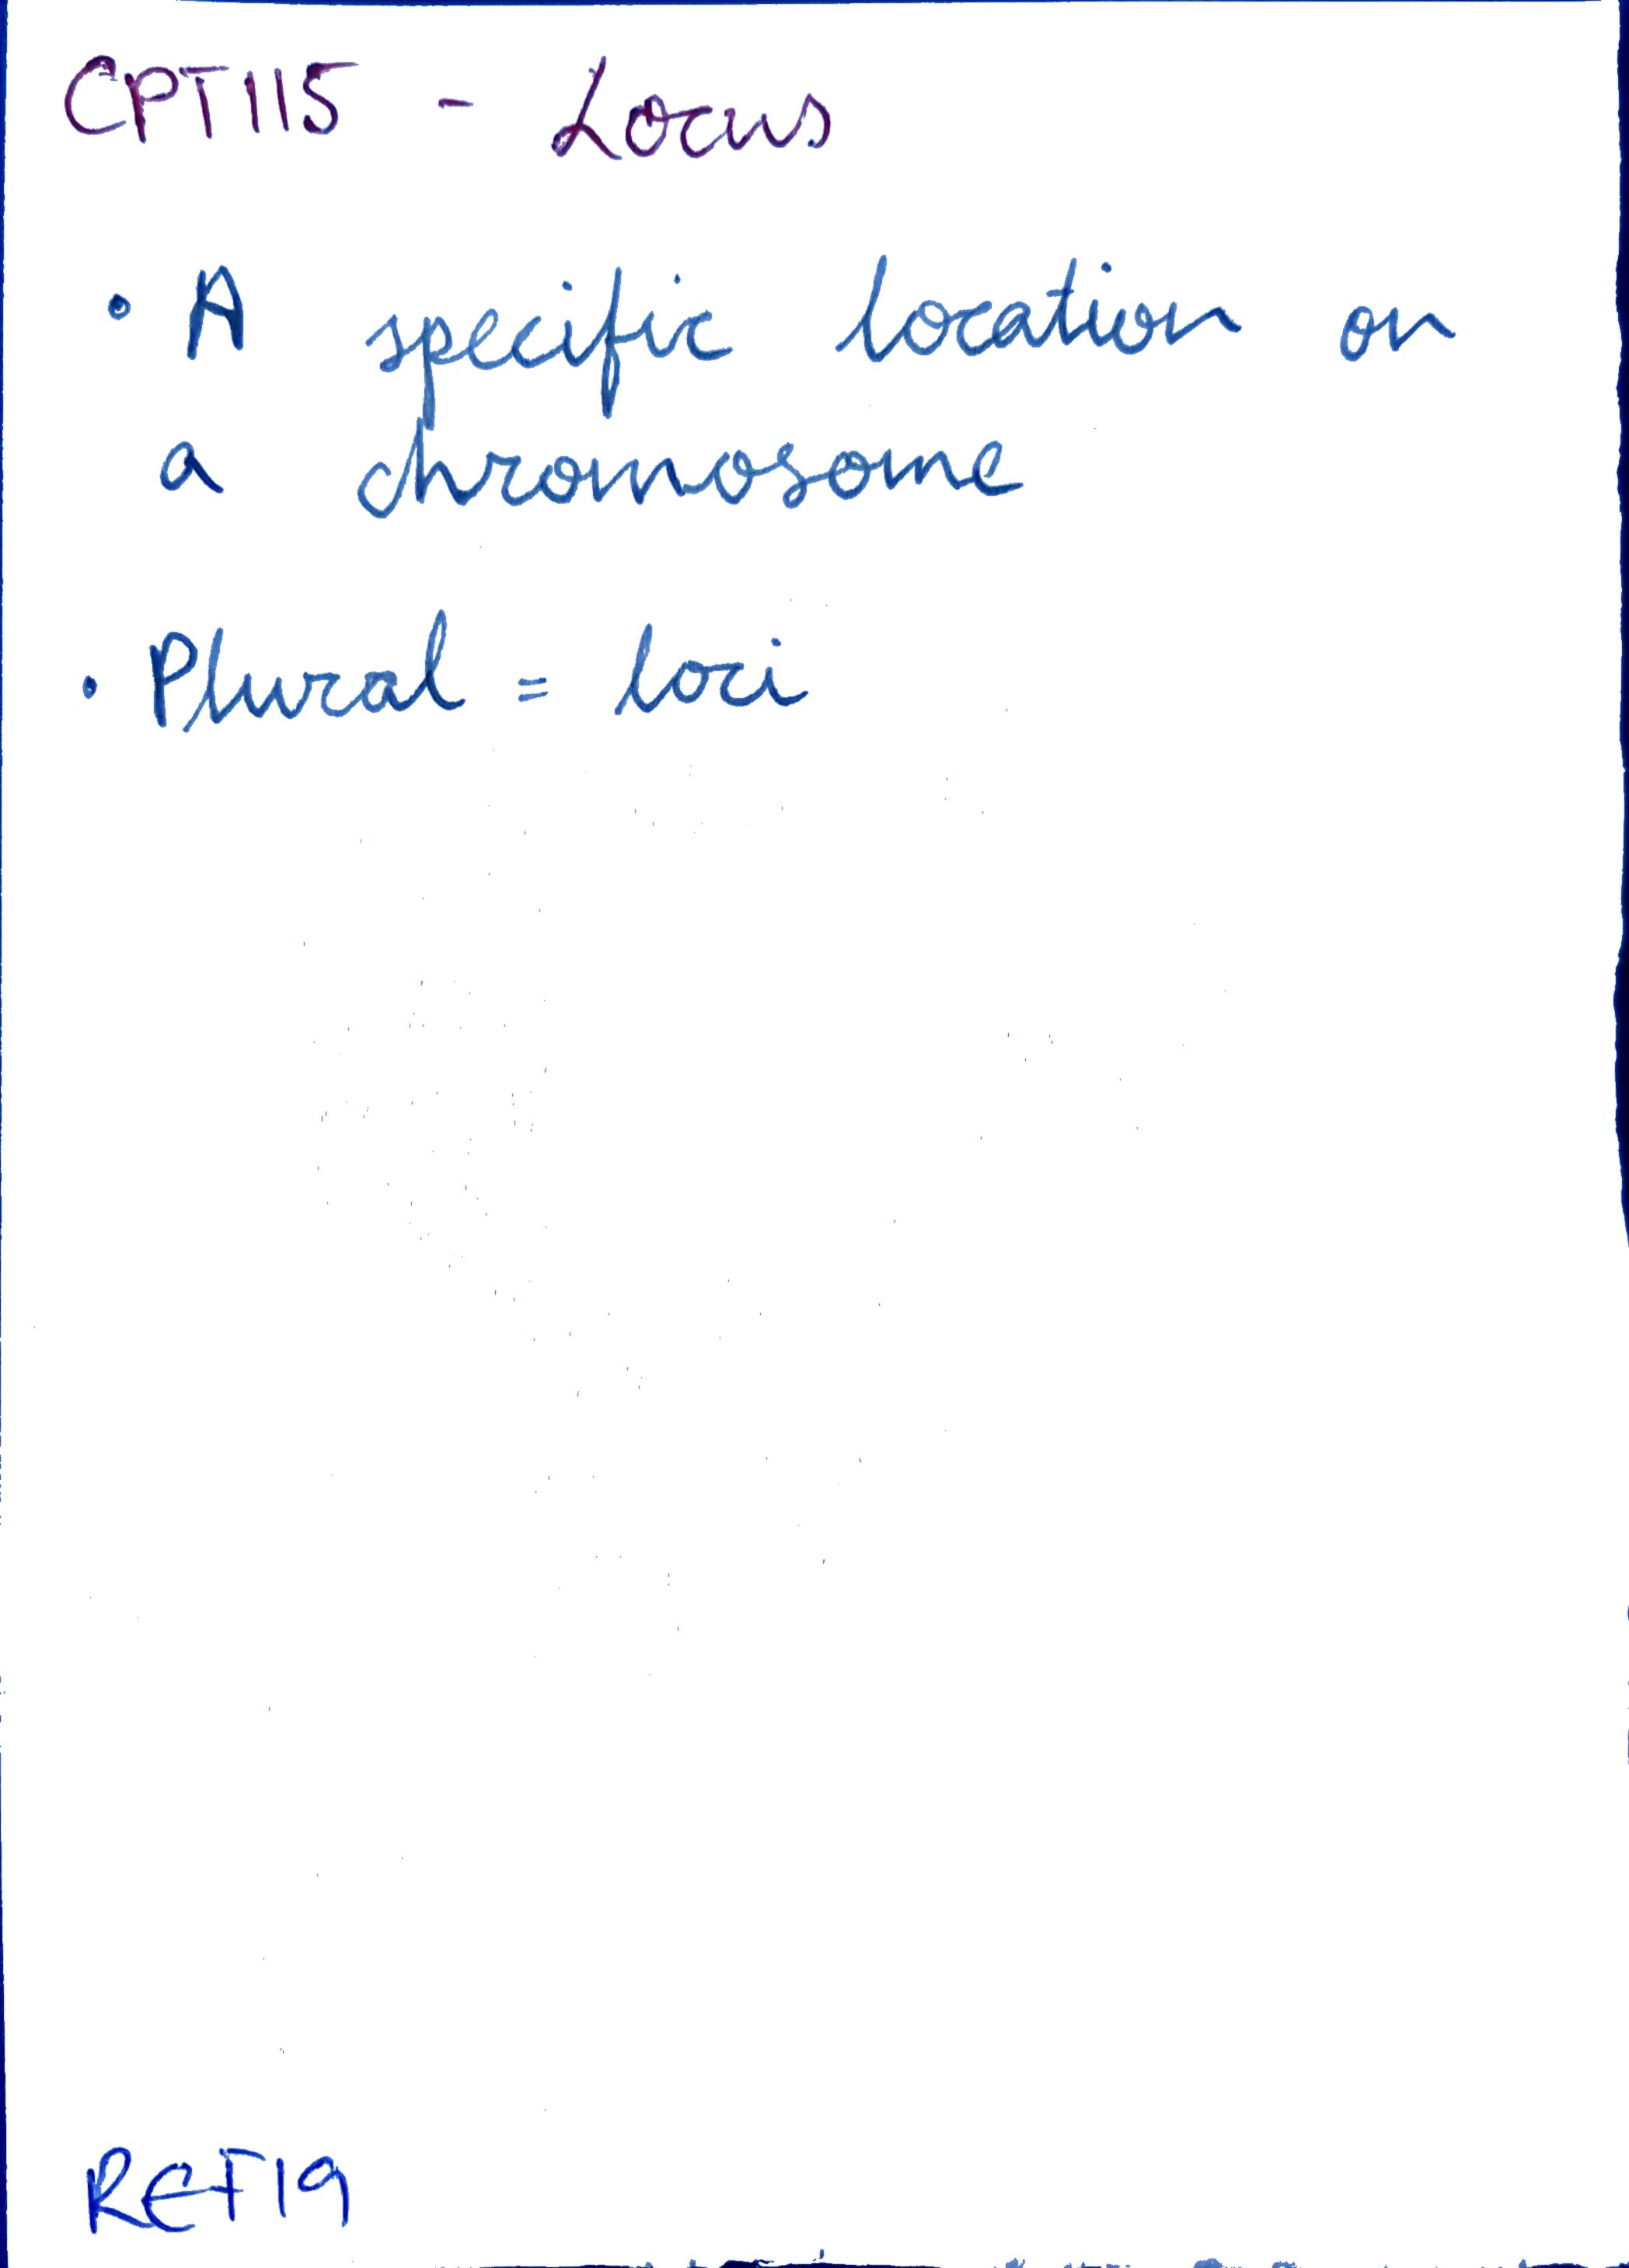 CPT115 - Locus
• A specific location on
a chromosome
• Plural = loci
REF19